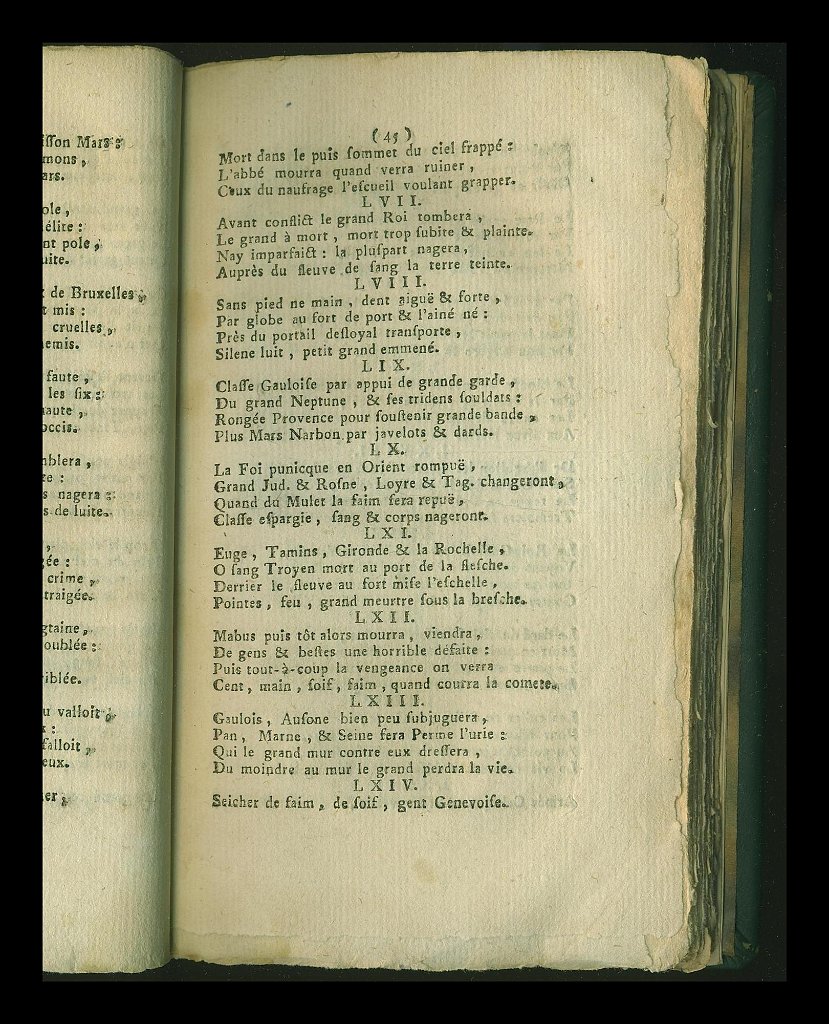 isson Mars :
mons ,
ars.
ole ,
élite :
nt pole ,
uite.
de Bruxelles ,
t mis :
cruelles ,
emis.
faute ,
les six :
haute ,
occis.
mblera ,
re :
s nagera :
s de luite.
,
gée :
crime ,
traigée.
gtaine ,
oublée :
iblée.
u valloit ,
:
falloit ,
eux.
er ,
( 45 )
Mort dans le puis sommet du ciel frappé :
L'abbé mourra quand verra ruiner ,
Ceux du naufrage l'escueil voulant grapper.
LVII.
Avant conflict le grand Roi tombera ,
Le grand à mort , mort trop subite & plainte.
Nay imparfaict : la pluspart nagera ,
Auprès du fleuve de sang la terre teinte.
LVIII.
Sans pied ne main , dent aiguë & forte ,
Par globe au fort de port & l'ainé né :
Près du portail desloyal transporte ,
Silene luit , petit grand emmené.
LIX.
Classe Gauloise par appui de grande garde ,
Du grand Neptune , & ses tridens souldats :
Rongée Provence pour soustenir grande bande ,
Plus Mars Narbon par javelots & dards.
LX.
La Foi punicque en Orient rompuë ,
Grand Jud. & Rosne , Loyre & Tag. changeront ,
Quand du Mulet la faim sera repuë ,
Classe espargie , sang & corps nageront.
LXI.
Euge , Tamins , Gironde & la Rochelle ,
O sang Troyen mort au port de la flesche.
Derrier le fleuve au fort mise l'eschelle ,
Pointes , feu , grand meurtre sous la bresche.
LXII.
Mabus puis tôt alors mourra , viendra ,
De gens & bestes une horrible défaite :
Puis tout-à-coup la vengeance on verra
Cent , main , soif , faim , quand courra la comete.
LXIII.
Gaulois , Ausone bien peu subjuguera ,
Pan , Marne , & Seine fera Perme l'urie :
Qui le grand mur contre eux dressera ,
Du moindre au mur le grand perdra la vie.
LXIV.
Seicher de faim , de soif , gent Genevoise.